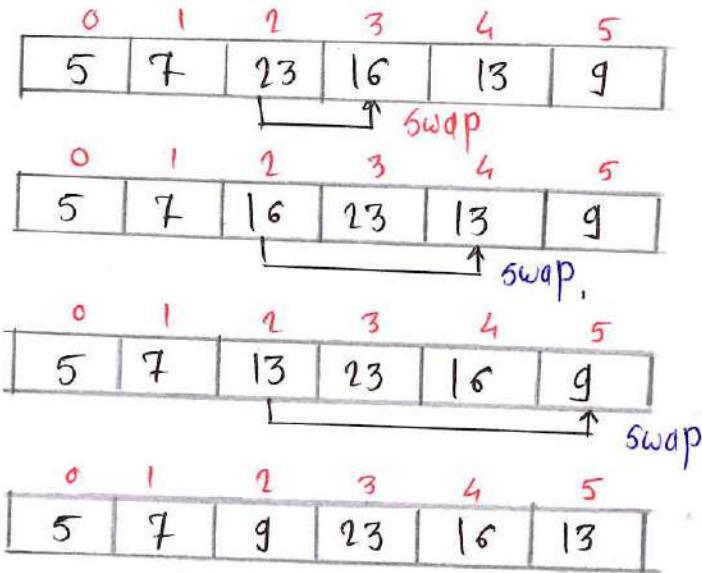 0 1 2 3 4 5
5 7 23 16 13 9
swap
0 1 2 3 4 5
5 7 16 23 13 9
swap.
0 1 2 3 4 5
5 7 13 23 16 9
swap
0 1 2 3 4 5
5 7 9 23 16 13